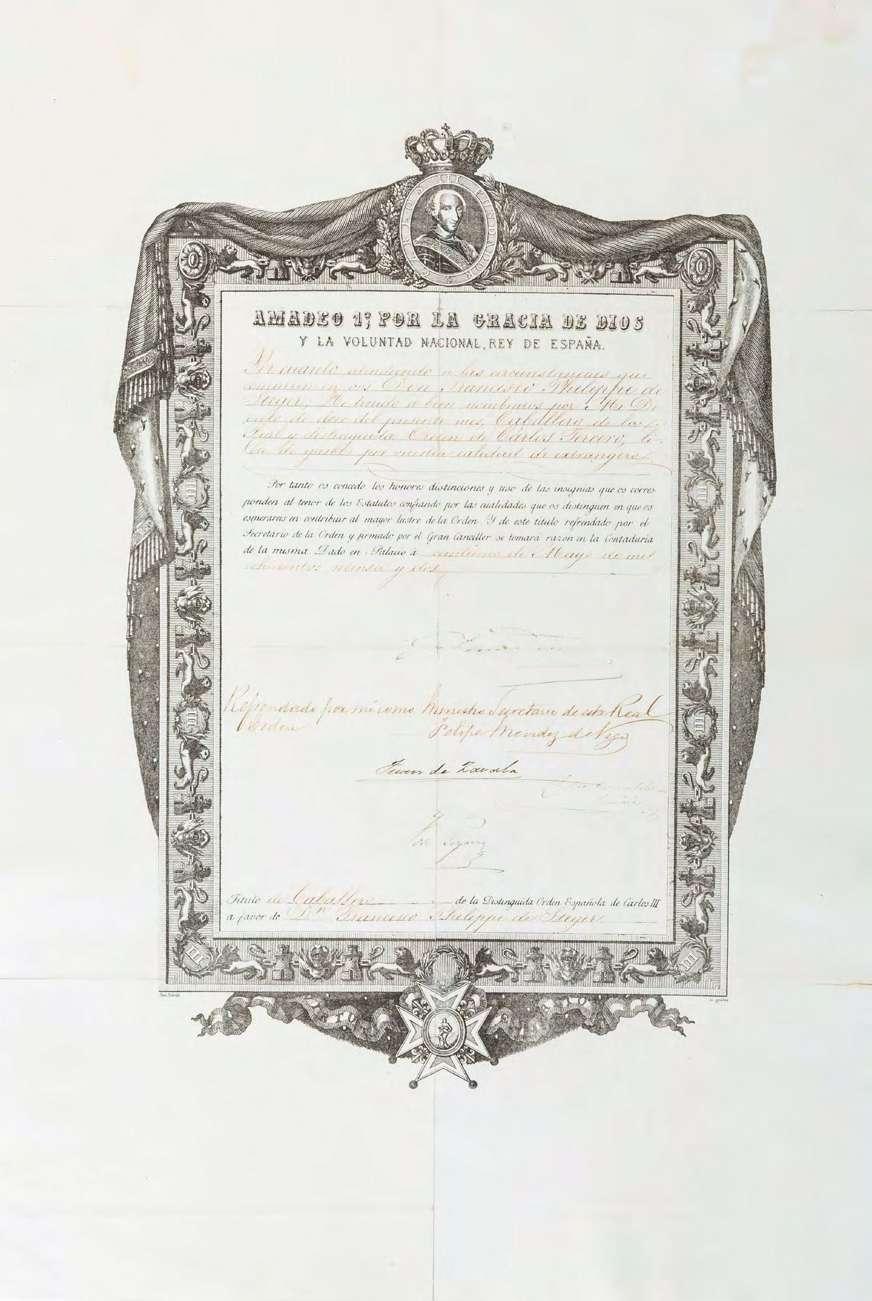 AMADEO 1º, POR LA GRACIA DE DIOS
Y LA VOLUNTAD NACIONAL, REY DE ESPAÑA.
Por cuanto atendiendo a las circunstancias que
concurren en vos Don Francisco Philippe de
He tenido a bien nombraros por Mi De
creto de doce del presente mes, Caballero de la
Real y distinguida Orden de Carlos Tercero, li
bre de gastos por vuestra calidad de extrangero
Por tanto os concedo los honores distinciones y uso de las insignias que os corres
ponden al tenor de los Estatutos confiando por las cualidades que os distinguen en que os
esmerareis en contribuir al mayor lustre de la Orden. Y de este título refrendado por el
Secretario de la Orden y firmado por el Gran Canciller se tomará razón en la Contaduría
de la misma. Dado en Palacio á de Mayo de mil
ochocientos setenta y dos
Refrendado por mi como Ministro Secretario de esta Real
Orden
Felipe Mendez de Vigo
Juan de Zavala
Título de Caballero de la Distinguida Orden Española de Carlos III
a favor de Dn. Francisco Philippe de